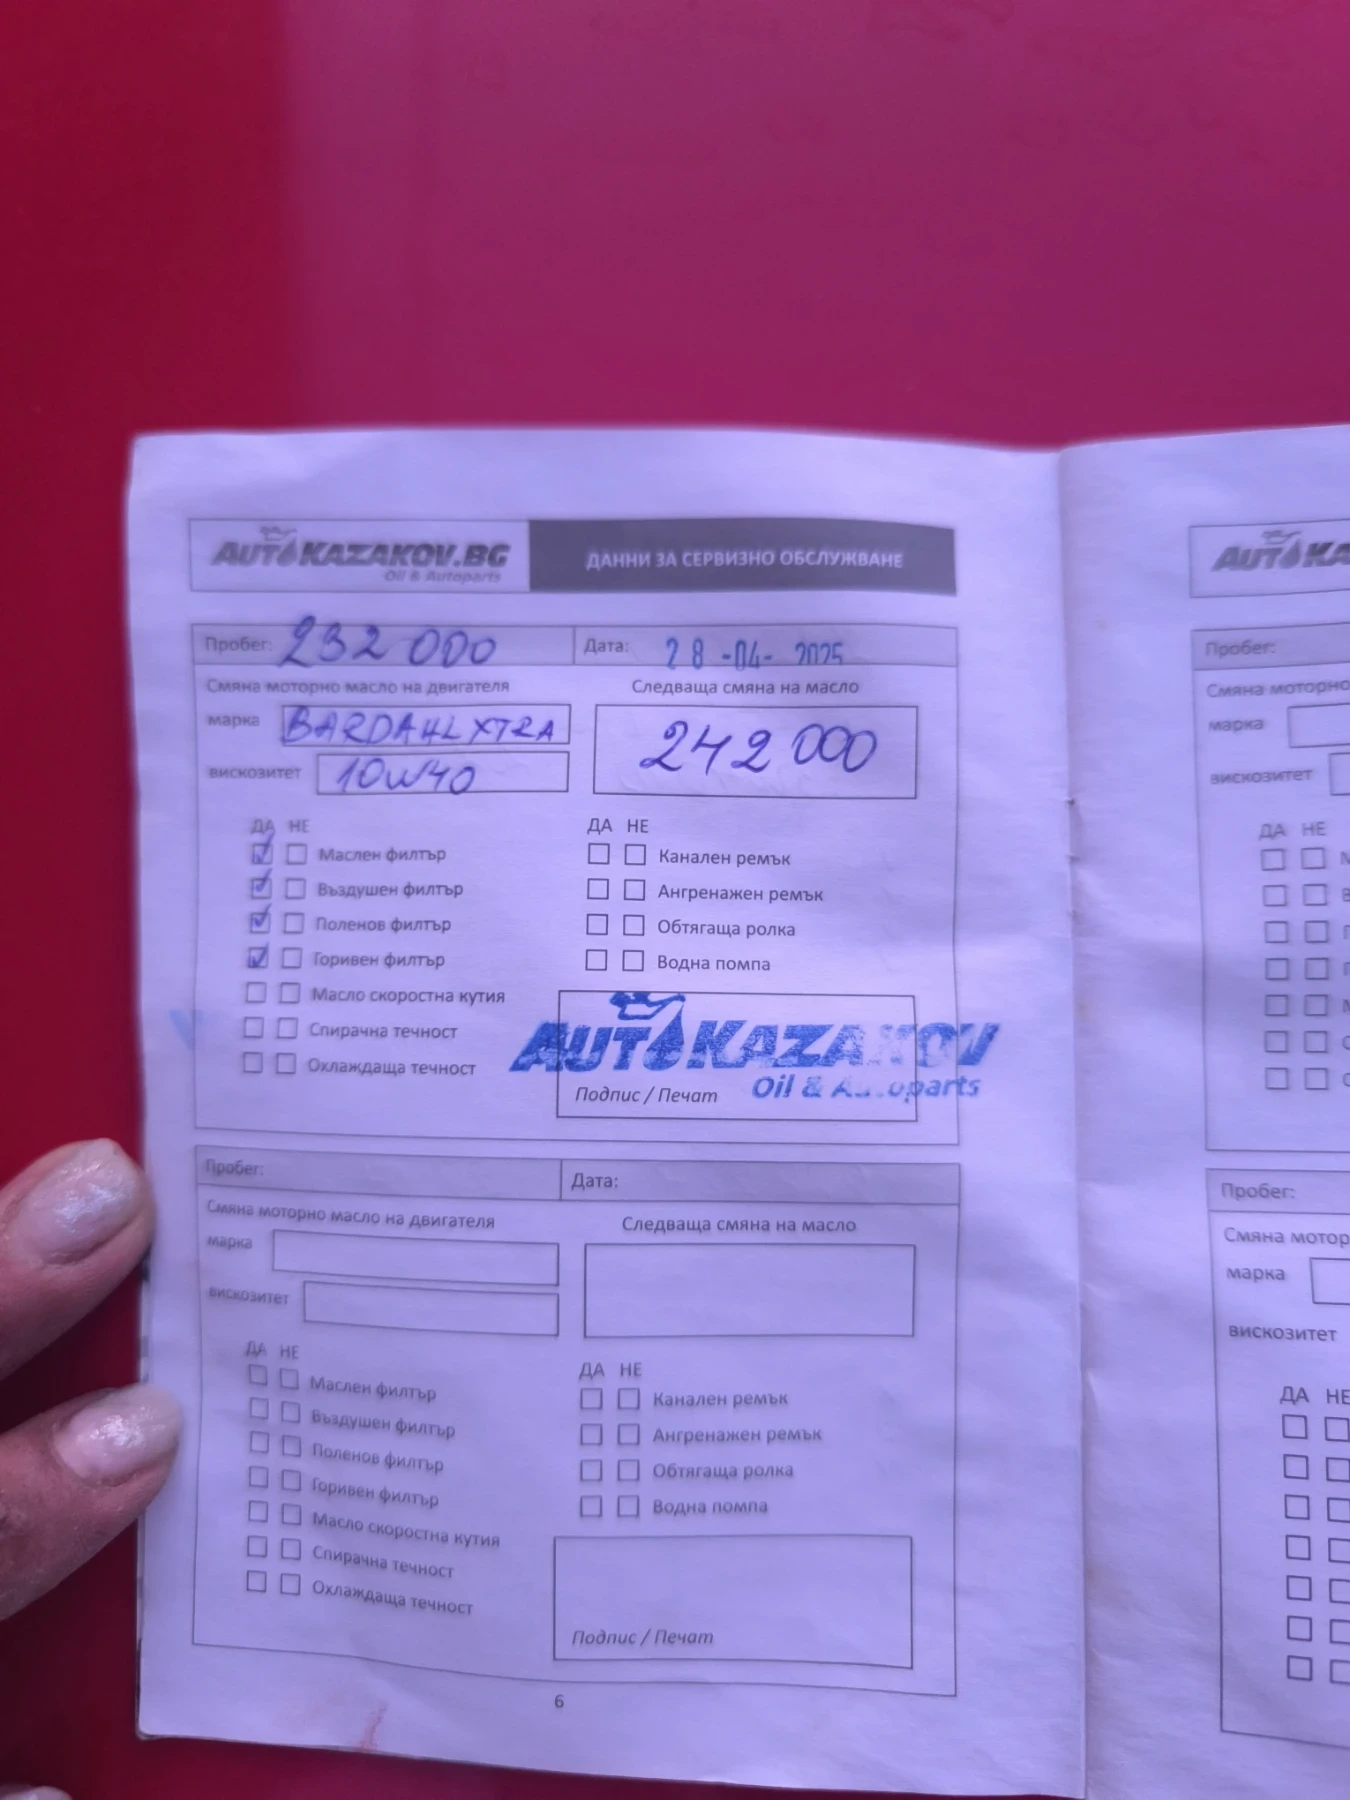 AUTOKAZAKOV.BG
Oil & Autoparts
ДАННИ ЗА СЕРВИЗНО ОБСЛУЖВАНЕ
Пробег: 232 000
Дата: 28 -04- 2025
Смяна моторно масло на двигателя
Следваща смяна на масло
марка BARDAHL XTRA
242 000
вискозитет 10W40
ДА НЕ
Маслен филтър
Въздушен филтър
Поленов филтър
Горивен филтър
Масло скоростна кутия
Спирачна течност
Охлаждаща течност
ДА НЕ
Канален ремък
Ангренажен ремък
Обтягаща ролка
Водна помпа
AUTOKAZAKOV
Oil & Autoparts
Подпис / Печат
Пробег:
Дата:
Смяна моторно масло на двигателя
Следваща смяна на масло
марка
вискозитет
ДА НЕ
Маслен филтър
Въздушен филтър
Поленов филтър
Горивен филтър
Масло скоростна кутия
Спирачна течност
Охлаждаща течност
ДА НЕ
Канален ремък
Ангренажен ремък
Обтягаща ролка
Водна помпа
Подпис / Печат
6
Пробег:
Смяна моторно
марка
вискозитет
ДА НЕ
Пробег:
Смяна мотор
марка
вискозитет
ДА НЕ